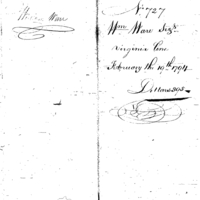 William Ware
No 727
Wm Ware Sejt
Virginia Line
February the 10th 1794